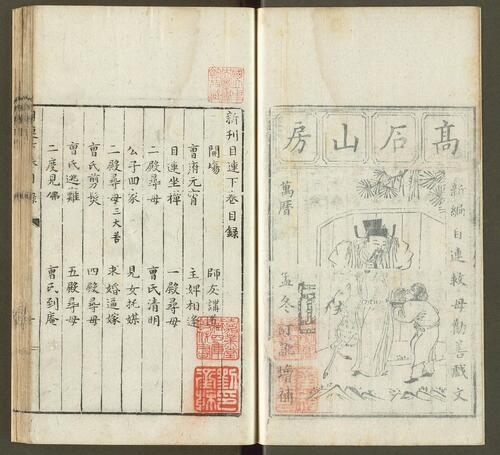 高石山房
新編目連救母勸善戲文
萬曆
孟冬訂訛增補
新刊目連下卷目録
開場 師友講道
曹府元宵 主婢相逢
目連坐禪 一殿尋母
二殿尋母 曹氏清明
公子回家 見女托媒
三殿尋母三大苦 求婚逼嫁
曹氏剪髮 四殿尋母
曹氏逃難 五殿尋母
二度見佛 曹氏到庵